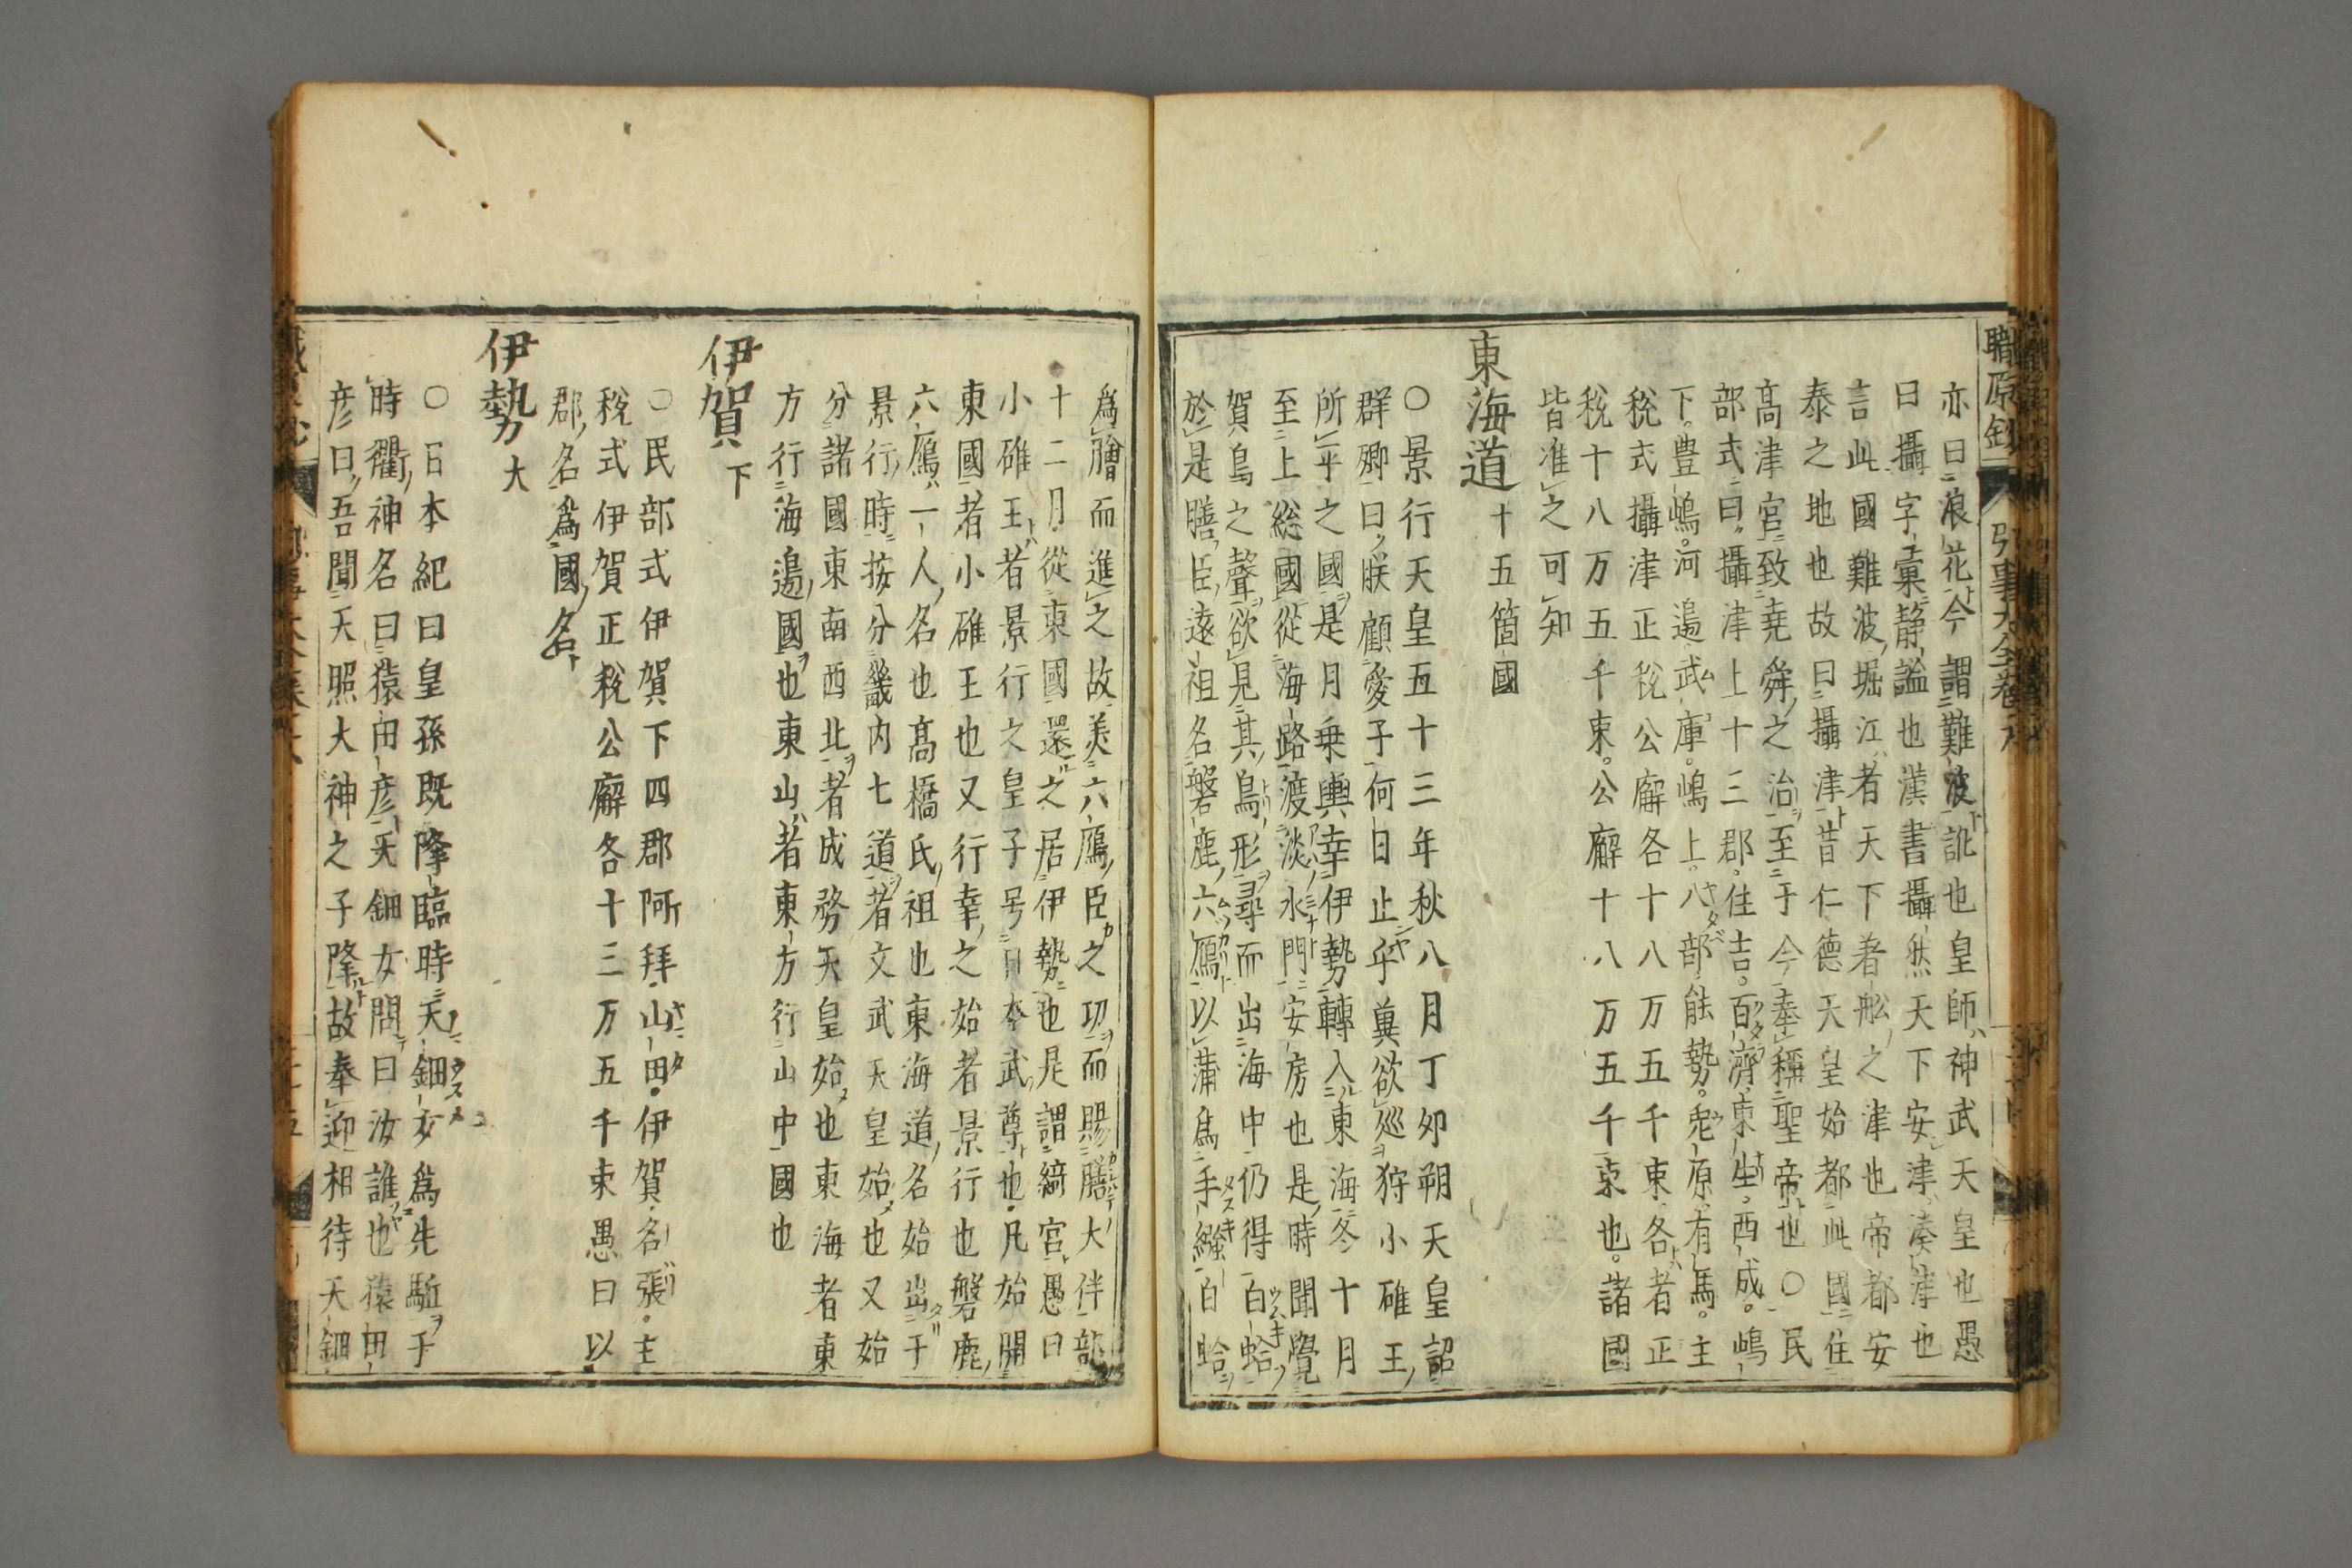 職原鈔 引事大全卷六
亦曰浪花今謂難波訛也皇師ハ神武天皇也愚
曰攝字彙靜謐也漢書攝然天下安津湊津也
言此國難波堀江ハ者天下着舩之津也帝都安
泰之地也故曰攝津昔仁德天皇始都此國住
高津宮致堯舜之治至于今奉稱聖帝也○民
部式曰攝津上十三郡住吉。百濟。東生。西成。嶋
下。豊嶋。河邉。武庫。嶋上。八部。能勢。兎原。有馬。主
稅式攝津正稅公廨各十八万五千束各者正
稅十八万五千束。公廨十八万五千束也。諸國
皆准之可知
東海道 十五箇國
○景行天皇五十三年秋八月丁夘朔天皇詔
群卿曰朕顧愛子何日止乎兾欲廵狩小碓王
所平之國是月乗輿幸伊勢轉入東海冬十月
至上総國從海路渡淡水門安房也是時聞覺
賀鳥之聲欲見其鳥形尋而出海中仍得白蛤
於是膳臣遠祖名磐鹿六鴈以蒲為手繦白蛤
為膾而進之故美六鴈臣之功而賜膳大伴部
十二月從東國還之居伊勢也是謂綺宮愚曰
小碓王者景行之皇子号日本武尊也凡始開
東國者小碓王也又行幸之始者景行也磐鹿
六鴈一人名也髙橋氏祖也東海道名始出于
景行時按分畿内七道者文武天皇始也又始
分諸國東南西北者成務天皇始也東海者東
方行海邉國也東山者東方行山中國也
伊賀 下
○民部式伊賀下四郡阿拜山田。伊賀名張。主
稅式伊賀正稅公廨各十三万五千束愚曰以
郡名為國名
伊勢 大
○日本紀曰皇孫既降臨時天鈿女為先駈于
時衢神名曰猿田彦天鈿女問曰汝誰也猿田
彦曰吾聞天照大神之子降故奉迎相待天鈿